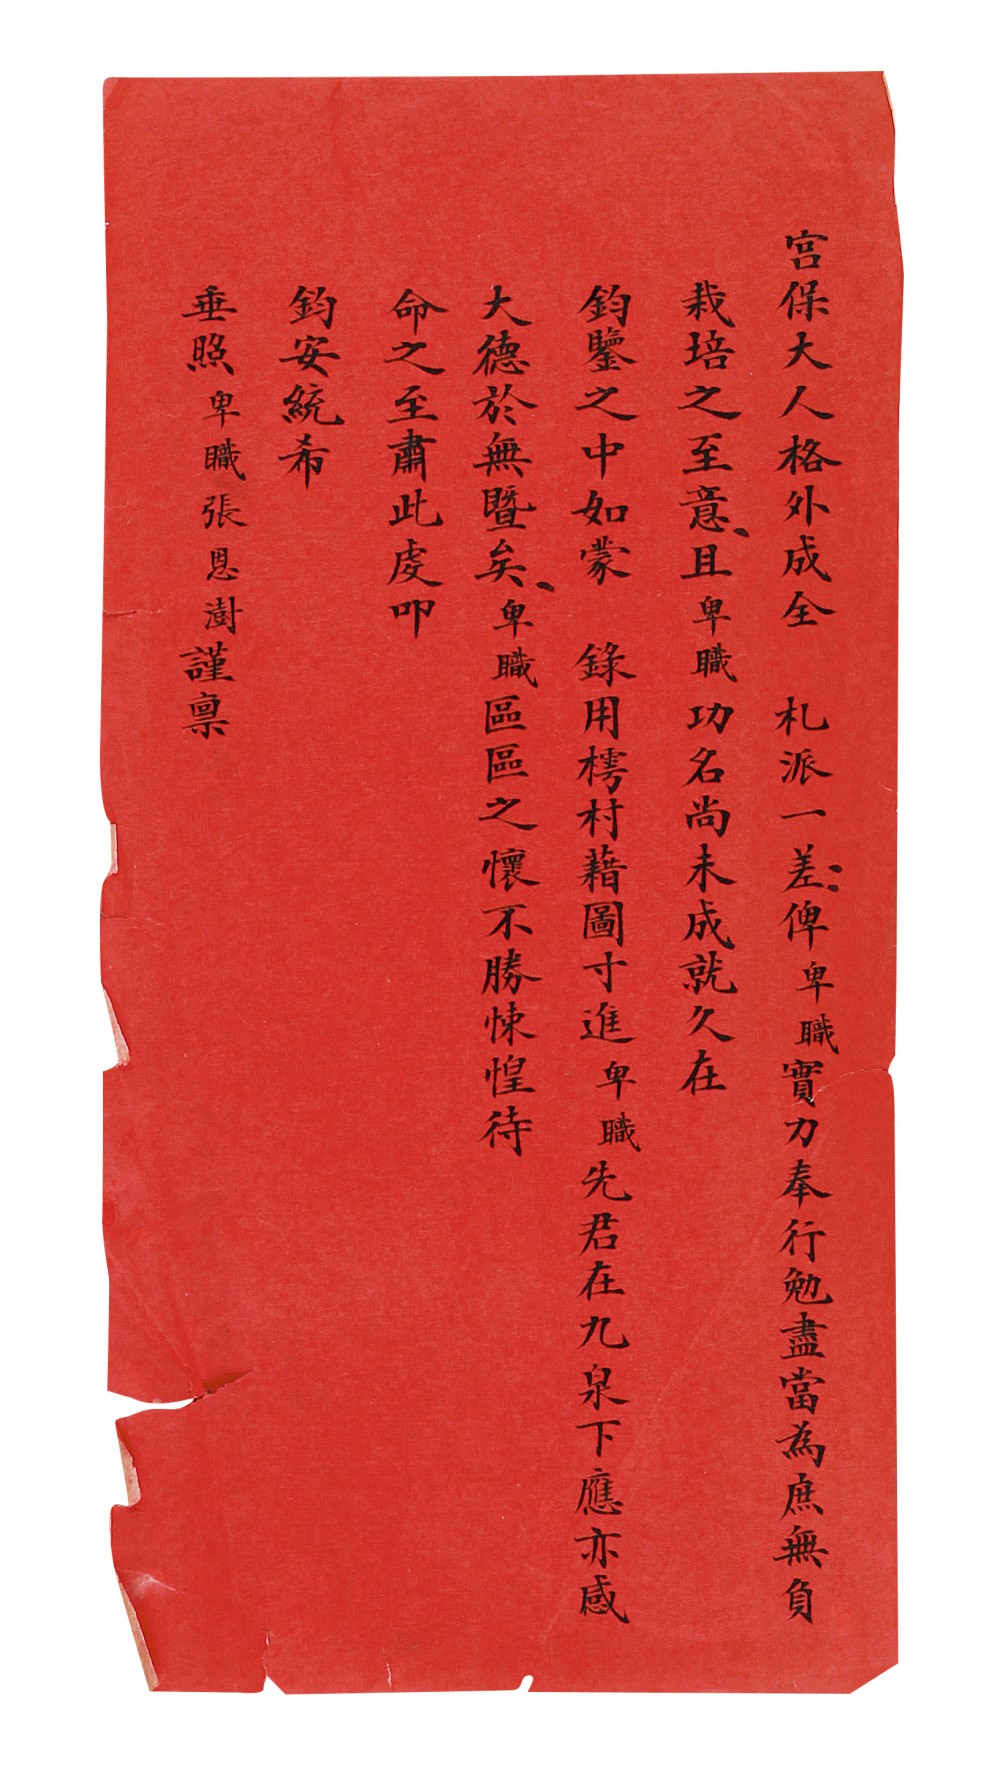 宫保大人格外成全　札派一差俾卑職實力奉行勉盡當為庶無負
栽培之至意且卑職功名尚未成就久在
鈞鑒之中如蒙　錄用樗材藉圖寸進卑職先君在九泉下應亦感
大德於無暨矣卑職區區之懷不勝悚惶待
命之至肅此虔叩
鈞安統希
垂照卑職張恩澍謹稟